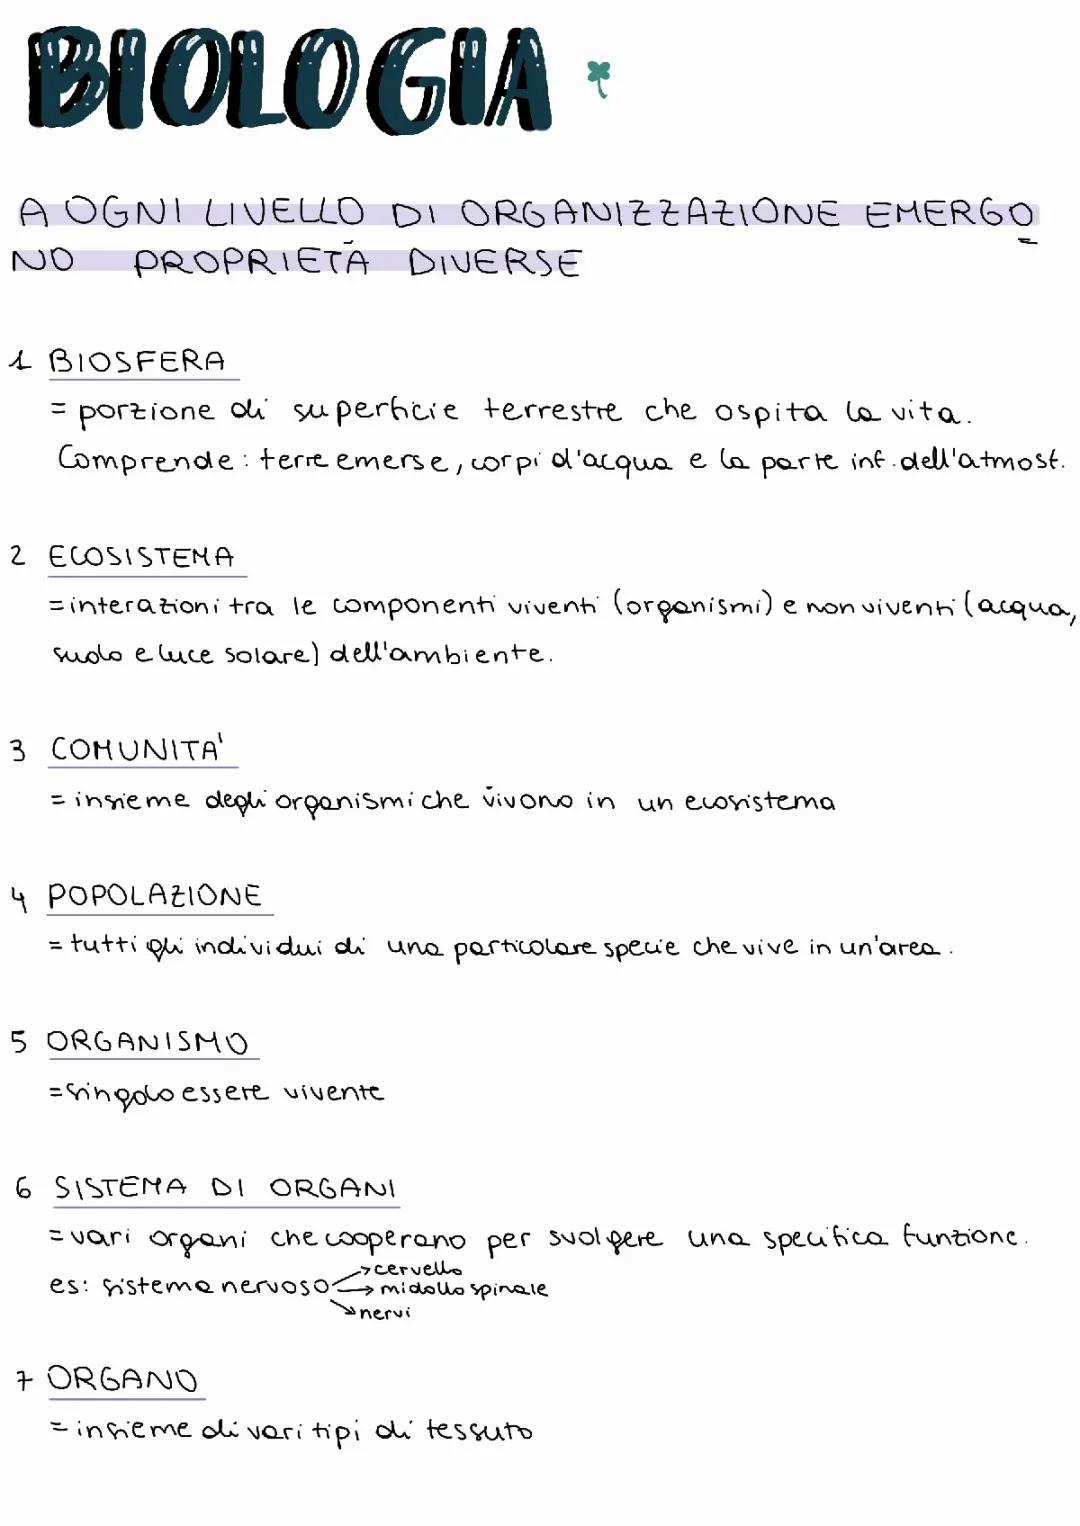 BIOLOGIA
A OGNI LIVELLO DI ORGANIZZAZIONE EMERGO
NO PROPRIETÀ DIVERSE
1 BIOSFERA
= porzione di superficie terrestre che ospita la vita.
Comprende: terre emerse, corpi d'acqua e la parte inf. dell'atmosf.
2 ECOSISTEMA
= interazioni tra le componenti viventi (organismi) e non viventi (acqua,
suolo e luce solare) dell'ambiente.
3 COMUNITA'
= insieme degli organismi che vivono in un ecosistema
4 POPOLAZIONE
= tutti gli individui di una particolare specie che vive in un'area.
5 ORGANISMO
= singolo essere vivente
6 SISTEMA DI ORGANI
= vari organi che cooperano per svolgere una specifica funzione.
es: sistema nervoso → cervello
→ midollo spinale
→ nervi
7 ORGANO
= insieme di vari tipi di tessuto